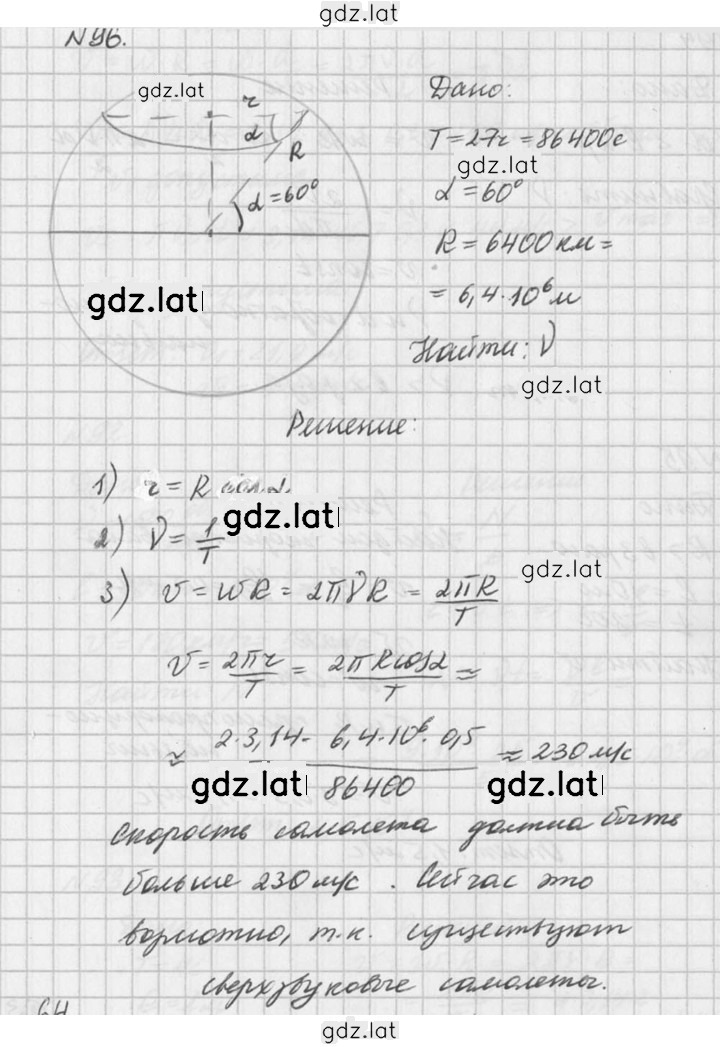 gdz.lat
N96.
gdz.lat
r
α
R
α=60°
gdz.lat
Дано:
T=27ч=86400с
gdz.lat
α=60°
R=6400км=
=6,4·10⁶м
Найти: ν
gdz.lat
Решение:
1) r=R
gdz.lat
2) ν=1/T
3) v=ωR=2πνR=2πR/T
gdz.lat
v=2πr/T=2πRcosα/T≈
≈2·3,14·6,4·10⁶·0,5/86400≈230м/с
gdz.lat
gdz.lat
Скорость самолета должна быть
больше 230м/с. Сейчас это
, т.к. существуют
сверхзвуковые самолеты.
64
gdz.lat